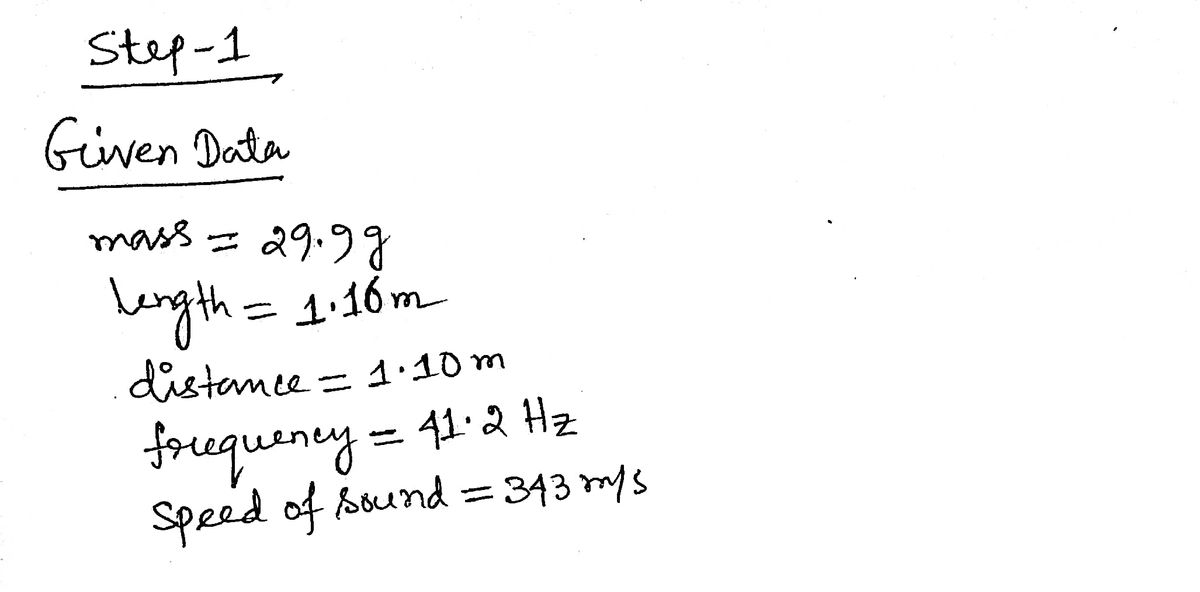 Step-1
Given Data
mass = 29.9g
length = 1.16m
distance = 1.10 m
frequency = 41.2 Hz
speed of sound = 343 m/s